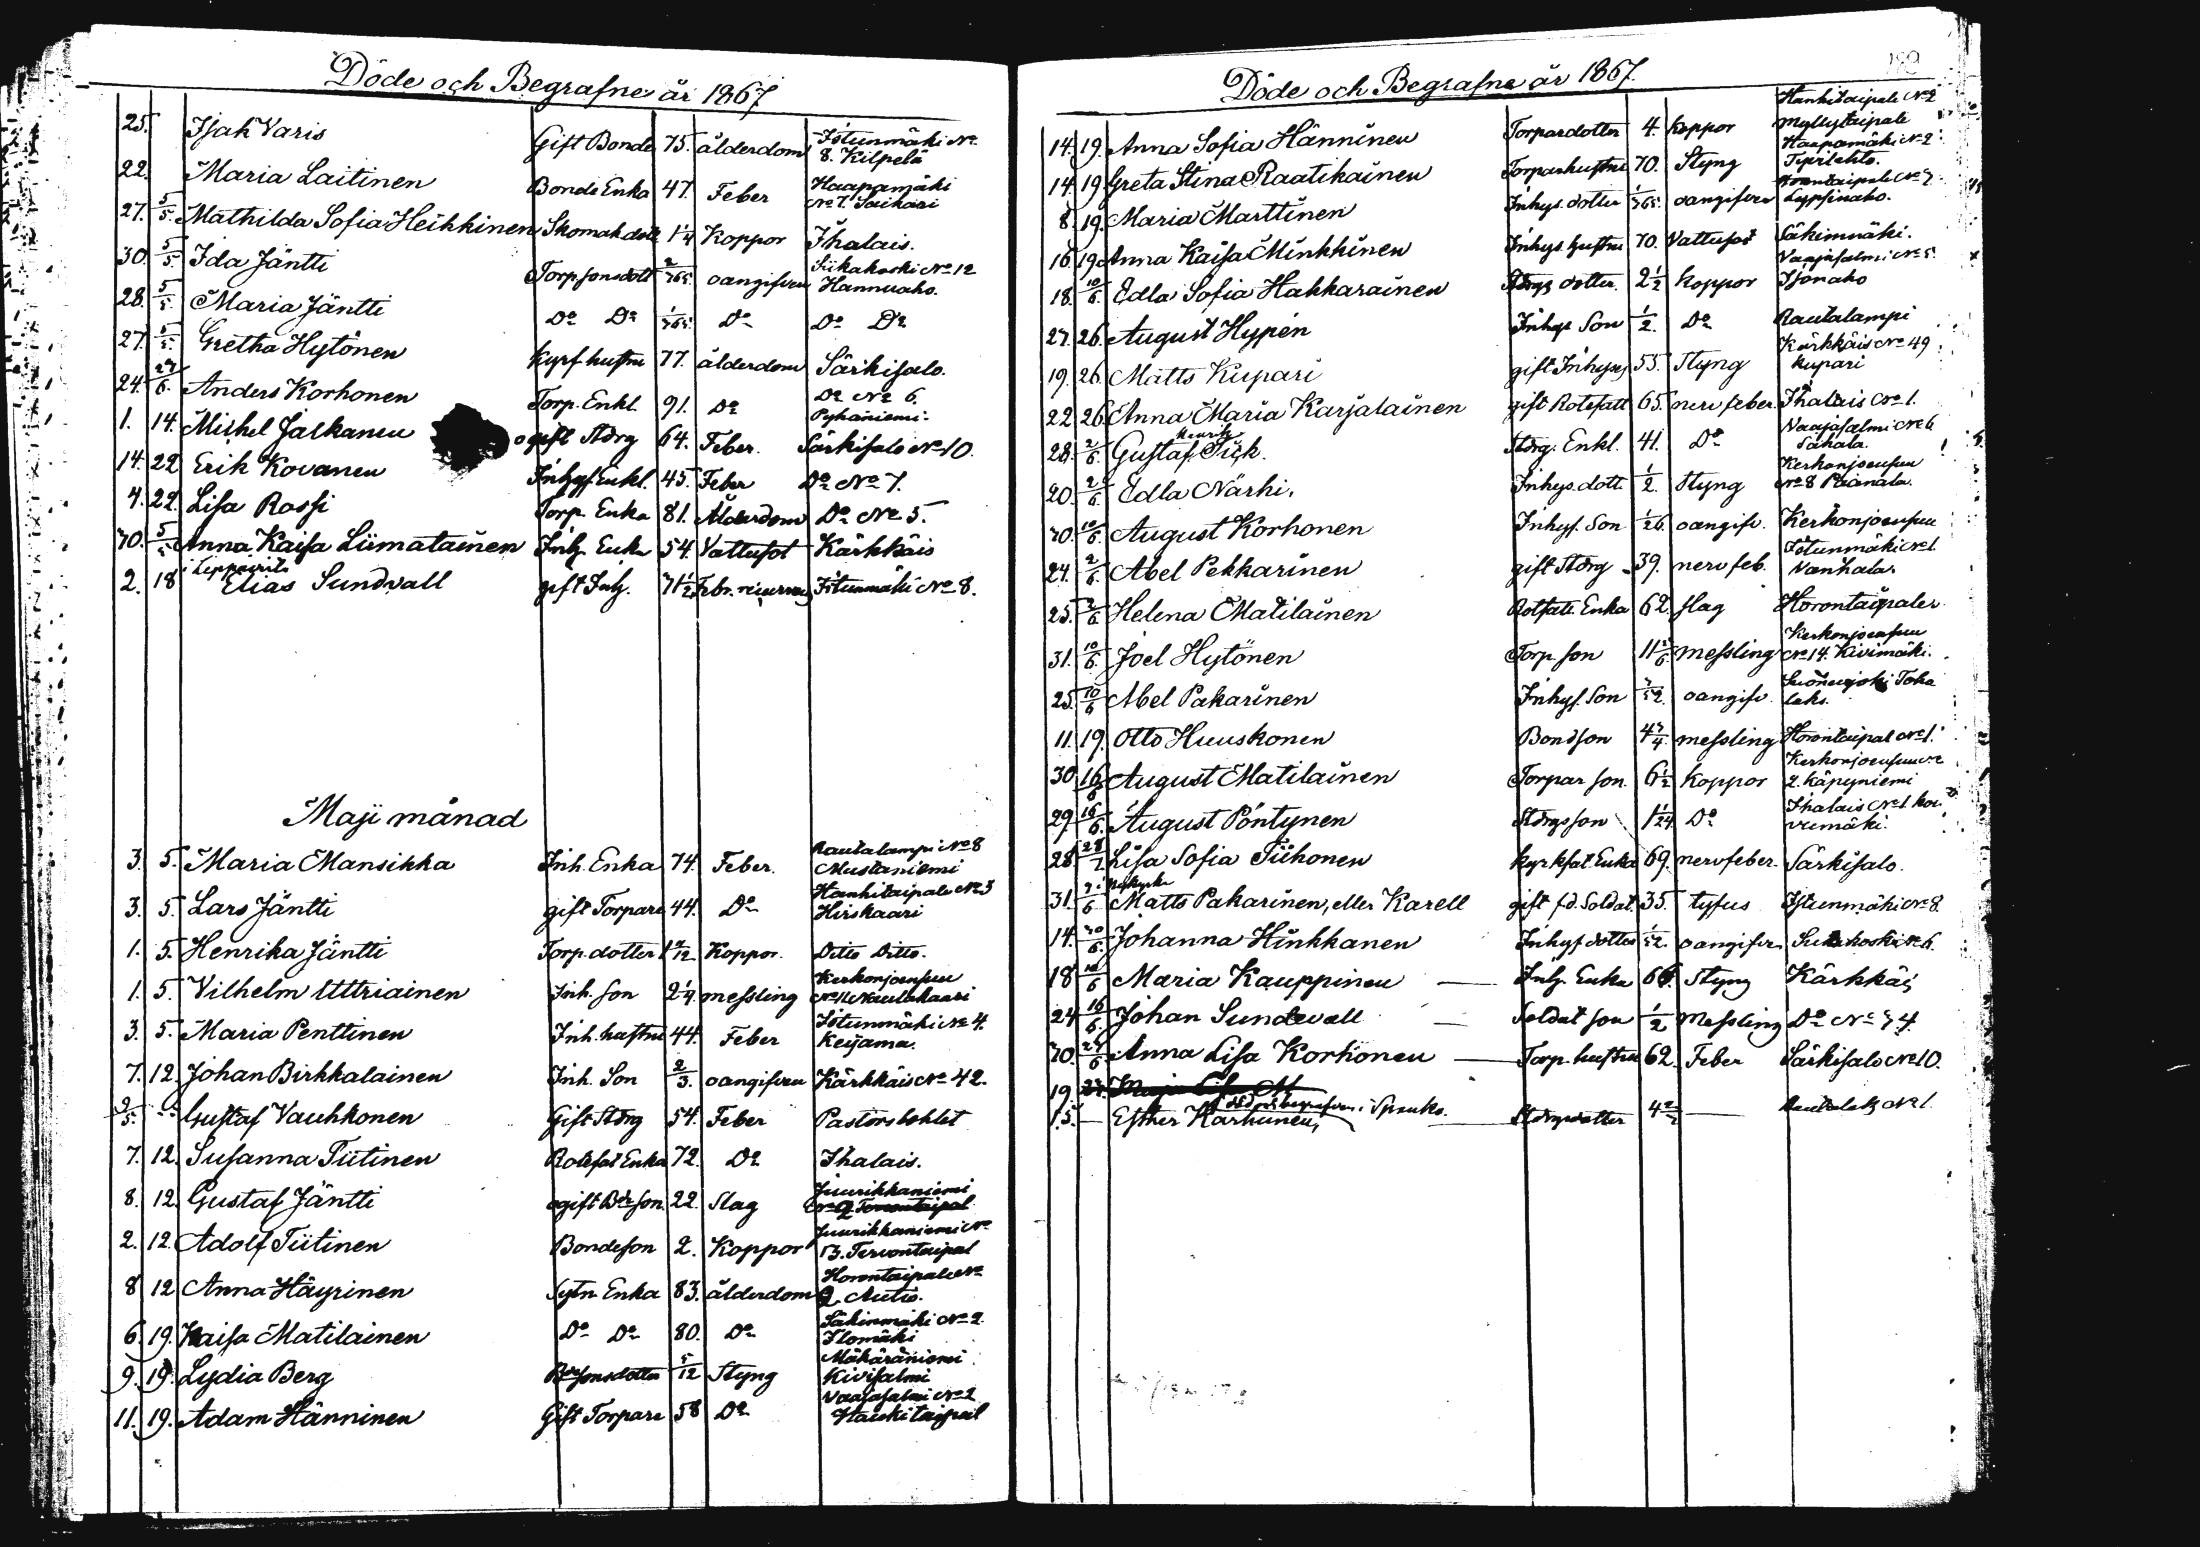 Döde och Begrafne år 1867
25. Isak Varis Gift Bonde 75. ålderdom Istunmäki No 8. Kilpelä
22. Maria Laitinen Bonde Enka 47. Feber Haapamäki No 7. Saikari
27. 5/5. Mathilda Sofia Heikkinen Skomak dott 1 1/4 Koppor Ihalais.
30. 5/5. Ida Jäntti Torp sons dott 2/365. oangifven Siikakoski No 12 Hannuaho.
28. 5/5. Maria Jäntti Do Do 1/365. Do Do Do
27. 5/5. Gretha Hytönen Kyrf hustru 77. ålderdom Särkisalo.
24. Anders Korhonen Torp. Enkl. 91. Do Do No 6. Pyhäniemi.
1. 14. Mickel Jalkanen ogift Stdrg 64. Feber. Särkisalo No 10.
14. 22. Erik Kovanen Inhys Enkl. 45. Feber Do No 7.
4. 22. Lisa Rossi Torp. Enka 81. Ålderdom Do No 5.
30. 5/5 Anna Kaisa Liimatainen Inh. Enka 54. Vattusot Kärkkäis
i Leppävirta
2. 18 Elias Sundvall gift Inh. 71 1/2 Febr. recurrens Istunmäki No 8.
Maji månad
3. 5. Maria Mansikka Inh. Enka 74. Feber. Rautalampi No 8 Mustaniemi
3. 5. Lars Jäntti gift Torpare 44. Do Hankitaipale No 3 Hirskaari
1. 5. Henrika Jäntti Torp. dotter 1 2/12 Koppor. Ditto Ditto.
1. 5. Vilhelm Uttriainen Inh. son 2 1/4. messling Kerkonjoensuu No 11. Naulakaari
3. 5. Maria Penttinen Inh. hustru 44. Feber Istunmäki No 4. Keijama.
7. 12. Johan Birkkalainen Inh. Son 2/3. oangifven Kärkkäis No 42.
9/5. Gustaf Vauhkonen Gift Stdrg 54. Feber Pastorsbohlet
7. 12. Susanna Tiitinen Rotefat Enka 72. Do Ihalais.
8. 12. Gustaf Jäntti ogift Bde son. 22. Slag Juurikkaniemi No 2
2. 12. Adolf Tiitinen Bondeson 2. Koppor Juurikkaniemi No 13. Tervontaipal
8 12 Anna Häyrinen Sytn. Enka 83. ålderdom Horontaipale No 2. Autio.
6. 19. Kaisa Matilainen Do Do 80. Do Säkinmäki No 2. Ilomäki
9. 19. Lydia Berg Bdesonsdotter 5/12 Styng Mäkäräniemi Kivisalmi
11. 19. Adam Hänninen Gift Torpare 58 Do Vaajasalmi No 2 Hankitaipal
Döde och Begrafne år 1867.
14. 19. Anna Sofia Hänninen Torpardotter 4. koppor Hankitaipale No 2 Myllytaipale
14. 19 Greta Stina Raatikainen Torparhustru 70. Styng Haapamäki No 2 Tipilehto.
8. 19. Maria Marttinen Inhys. dotter 1/365. oangifven Horontaipale No 7. Leppinaho.
16. 19. Anna Kaisa Minkkinen Inhys. hustru 70. Vattusot Säkinmäki.
18. 10/6. Edla Sofia Hakkarainen Stdrgs dotter. 2 1/2 koppor Vaajasalmi No 5. Isonaho
27. 26. August Hypén Inhys Son 1/2. Do Rautalampi
19. 26. Matts Kupari gift Inhyses 55. Styng Kärkkäis No 49. Kupari
22. 26. Anna Maria Karjalainen gift Rotefatt. 65. nervfeber. Ihalais No 1.
28. 2/6. Gustaf Henrik Tiik. Stdrg. Enkl. 41. Do Vaajasalmi No 6 Sahala.
20. 2/6. Edla Närhi. Inhys. dott. 1/2. Styng Kerkonjoensuu No 8 Paanala.
30. 10/6. August Korhonen Inhys. Son 1/26. oangifv. Kerkonjoensuu
24. 2/6. Abel Pekkarinen gift Stdrg 39. nervfeb. Istunmäki No 1. Vanhala.
25. 2/6. Helena Matilainen Rotfatt. Enka 62. slag Horontaipale.
31. 10/6. Joel Hytönen Torp. son 11 5/6. messling Kerkonjoensuu No 14. Kivimäki.
25. 10/6 Abel Pakarinen Inhys. Son 3/52. oangifv. Suonenjoki
11. 19. Otto Huuskonen Bondson 4 3/4. messling Horontaipal No 1.
30. 16/6 August Matilainen Torpar son. 6 1/2 koppor Kerkonjoensuu No 2. Käpyniemi
29. 16/6. August Pöntynen Stdrgs son 1 1/24 Do Ihalais No 1.
28. Lisa Sofia Tiihonen kyrkfat Enka 69. nervfeber. Särkisalo.
31. Matts Pakarinen, eller Karell gift fd. Soldat. 35. tyfus Istunmäki No 8.
14. 30/6. Johanna Hinkkanen Inhys dotter 1/52. oangifven Siikakoski No 6.
18 16/6 Maria Kauppinen Inh. Enka 66. Styng Kärkkäis
24 16/6. Johan Sundevall Soldat son 1/2 Messling Do No 34.
30. Anna Lisa Korhonen Torp. hustru 62. Feber Särkisalo No 10.
19.
15. Esther Karhunen, Stdrgsdotter 4